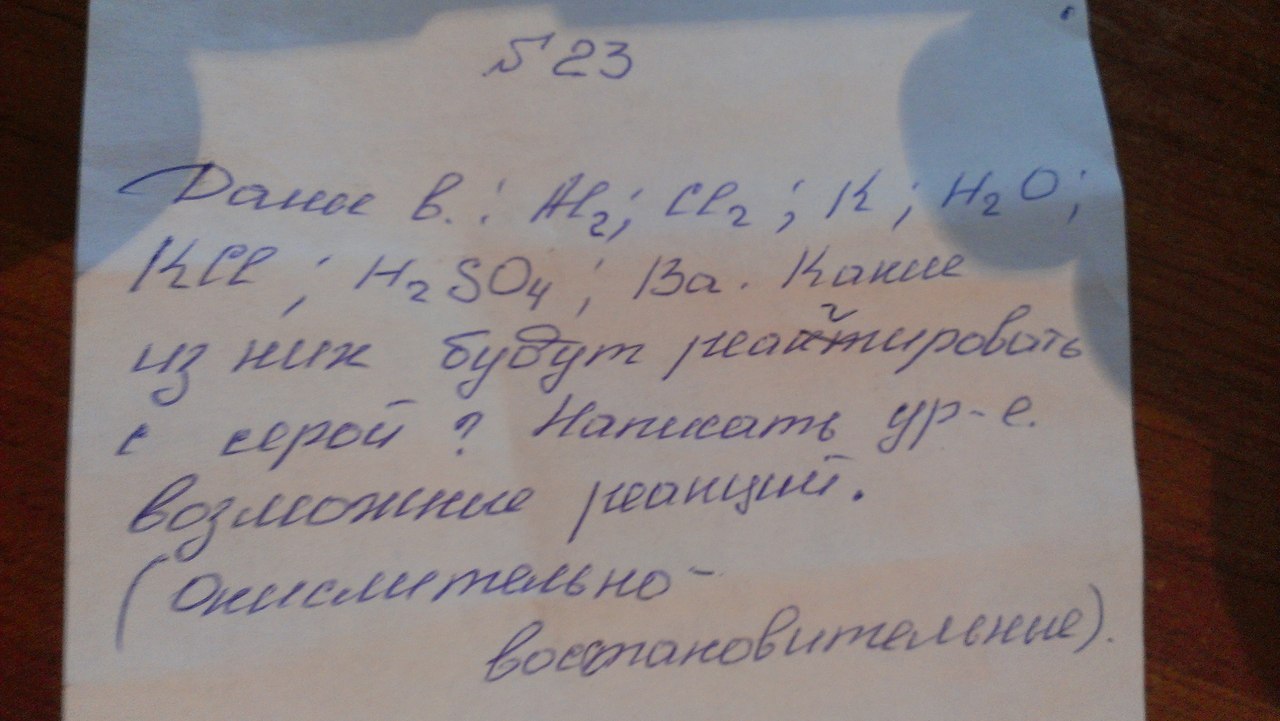 § 23
Даны в.: Al₂; Cl₂; K; H₂O;
KCl; H₂SO₄; Ba. Какие
из них будут реагировать
с серой? Написать ур-е.
возможные реакций.
(окислительно-
восстановительные).